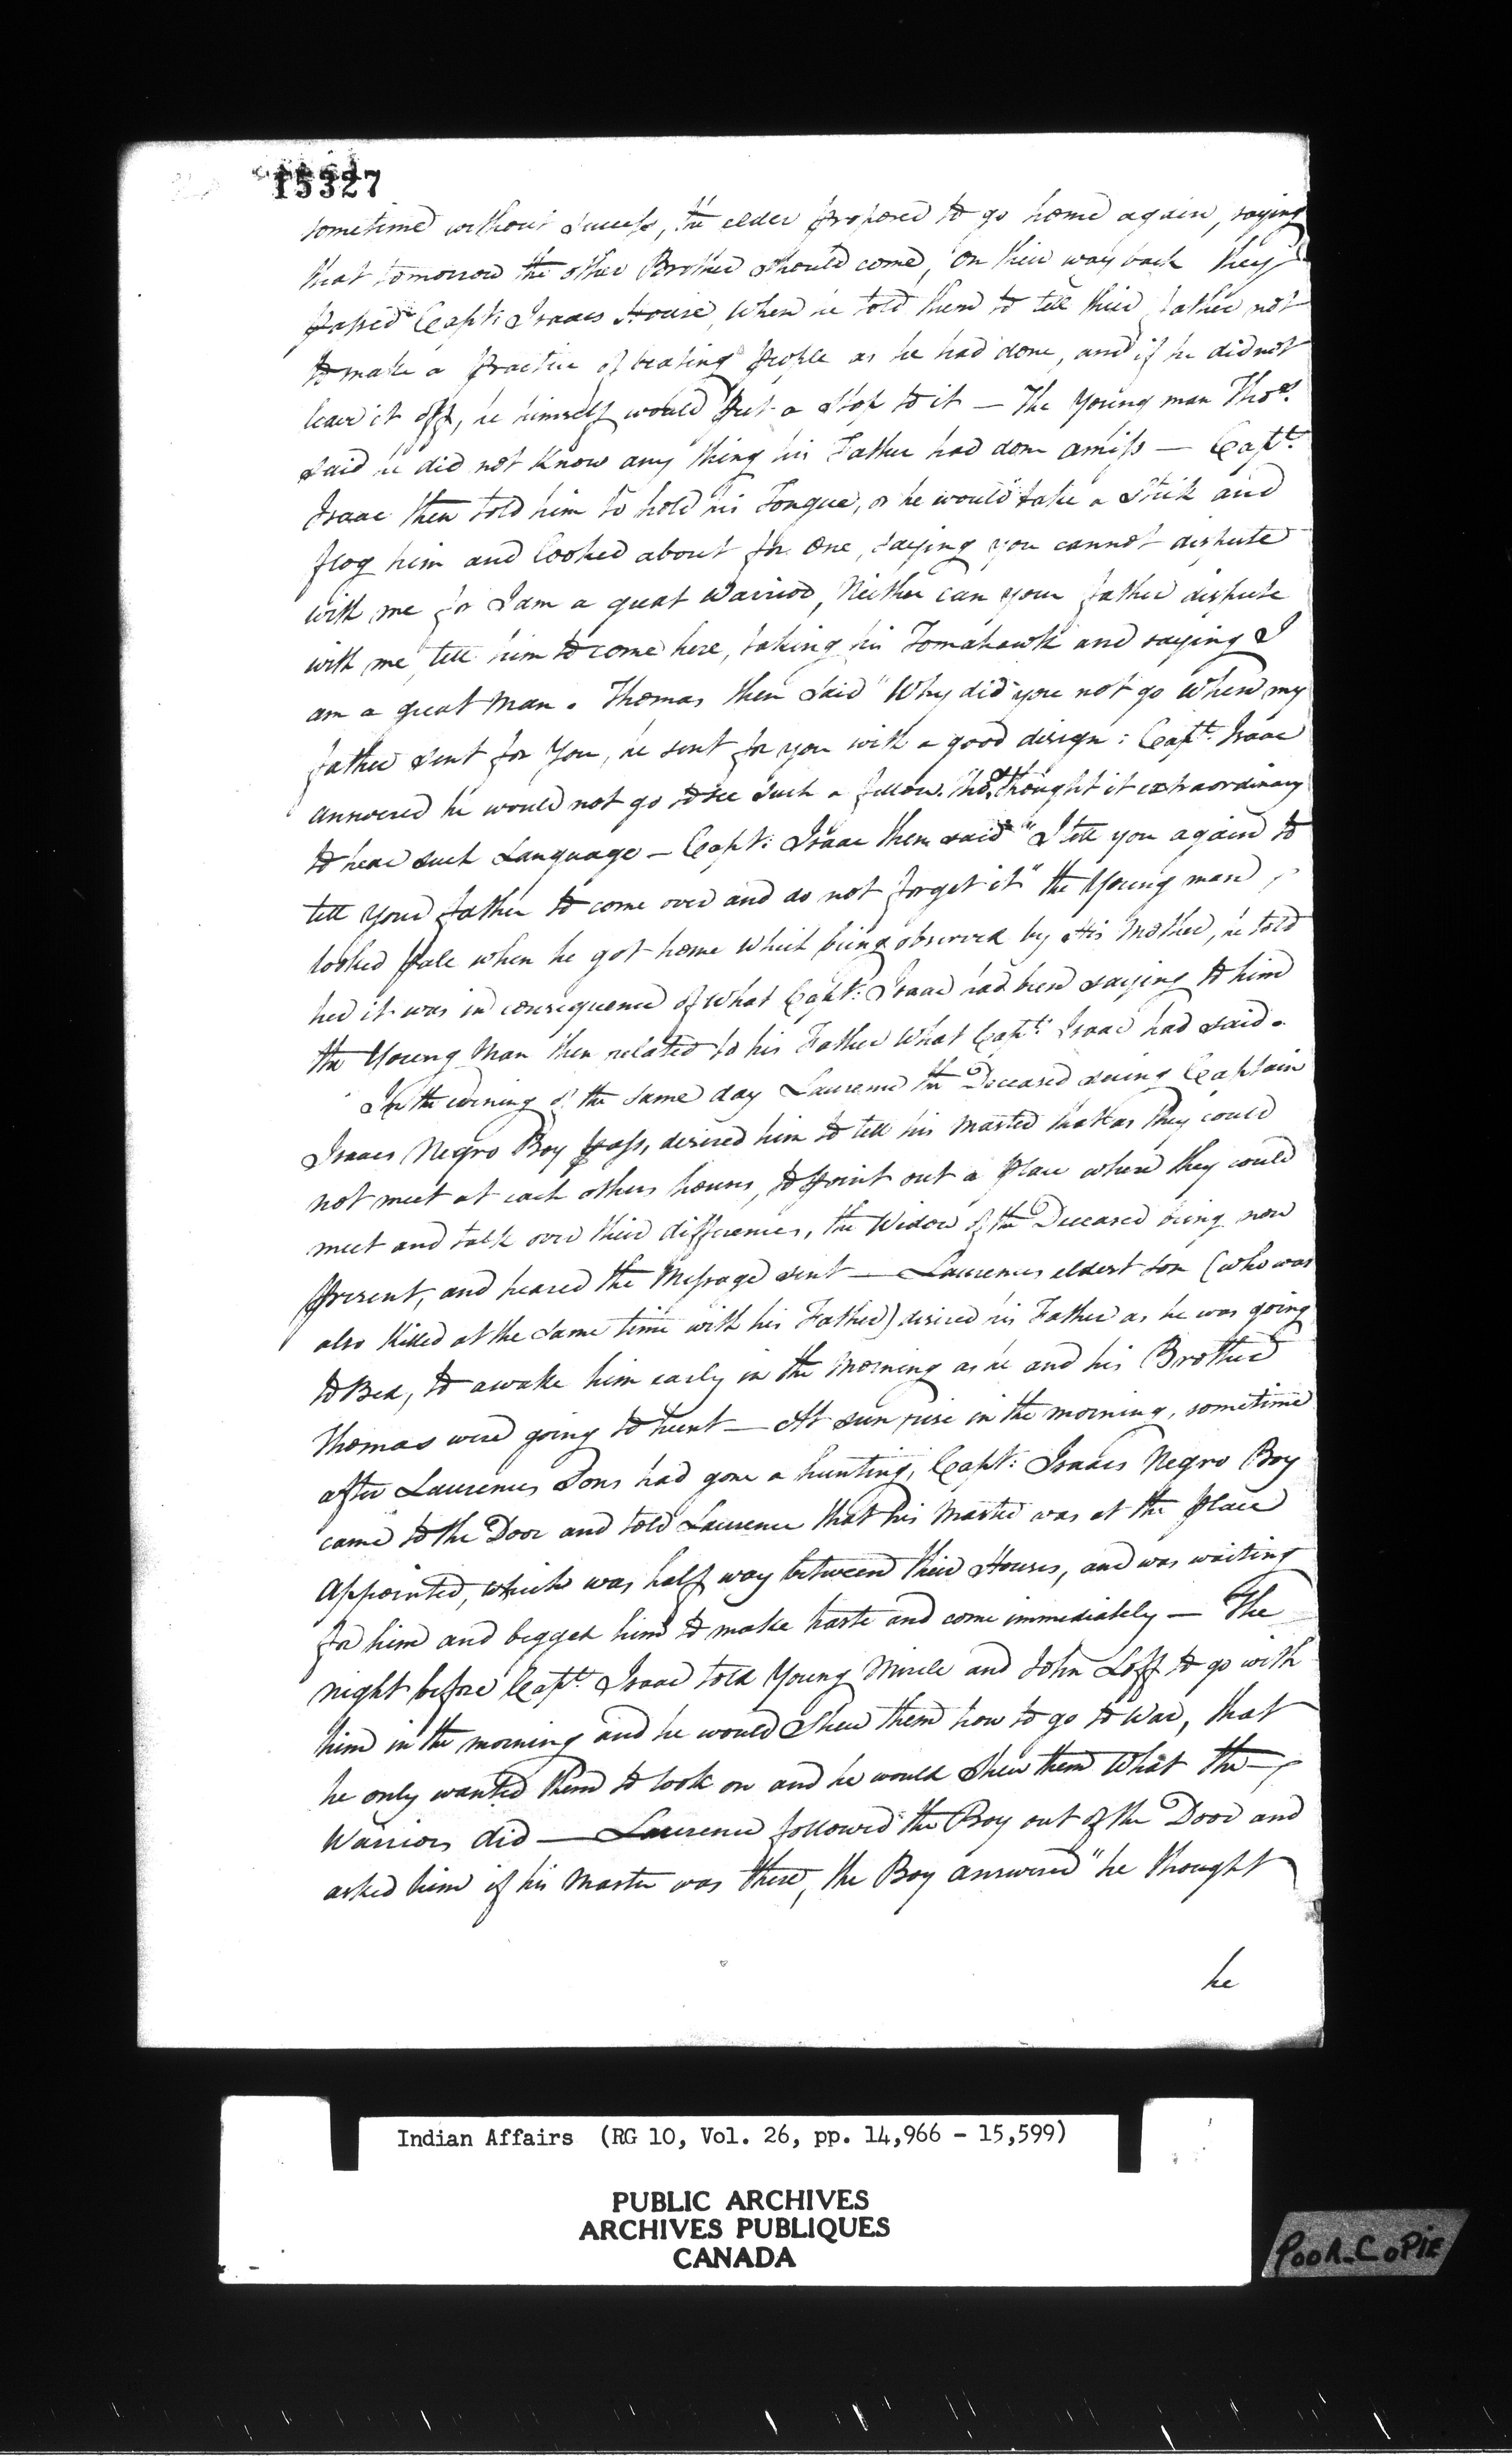 15327
sometime without success, the elder proposed to go home again, saying
that tomorrow the other Brother should come, On their way back they
passed Capt: Isaacs House, When he told them to tell their father not
to make a practice of beating people as he had done, and if he did not
leave it off, he himself would put a stop to it — The Young man Thos.
said he did not Know any thing his Father had done amiss — Capt.
Isaac then told him to hold his Tongue, or he would take a Stick and
flog him and looked about for One, saying you cannot dispute
with me for I am a great Warrior, Neither can your father dispute
with me, tell him to come here, taking his Tomahawk and saying I
am a great Man. Thomas then said "Why did you not go When my
father sent for You, he sent for you with a good design: Capt. Isaac
answered he would not go to see such a fellow. Thos. thought it extraordinary
to hear such Language — Capt: Isaac then said "I tell you again to
tell your father to come over and do not forget it" the Young man
looked pale when he got home which being observed by His Mother, he told
her it was in consequence of What Capt: Isaac had been saying to him
the Young Man then related to his Father What Capt: Isaac had said.
In the evening of the same day Laurence the Deceased seeing Captain
Isaacs Negro Boy pass, desired him to tell his Master that as they could
not meet at each others houses, to point out a place where they could
meet and talk over their differences, the Widow of the Deceased being now
present, and heared the Message sent — Laurences eldest son (who was
also killed at the same time with his Father) desired his Father as he was going
to Bed, to awake him early in the Morning as he and his Brother
Thomas were going to hunt — At sun rise in the morning, sometime
after Laurences Sons had gone a hunting, Capt: Isaacs Negro Boy
came to the Door and told Laurence that his Master was at the place
appointed, which was half way between their Houses, and was waiting
for him and begged him to make haste and come immediately — The
night before Capt. Isaac told Young Miscle and John Loft to go with
him in the morning and he would Shew them how to go to War, that
he only wanted them to look on and he would shew them What the
Warriors did — Laurence followed the Boy out of the Door and
asked him if his Master was there, the Boy answered "he thought
he
Indian Affairs (RG 10, Vol. 26, pp. 14,966 - 15,599)
PUBLIC ARCHIVES
ARCHIVES PUBLIQUES
CANADA
POOR COPIE